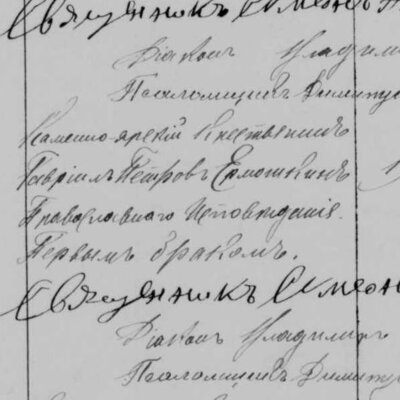 Священникъ Симеонъ
Діаконъ Владиміръ
Псаломщикъ Димитрі
Каменно-ярскій крестьянинъ
Гавріилъ Петровъ Ермошкинъ
Православнаго Исповѣданія.
Первымъ бракомъ.
Священникъ Симеон
Діаконъ Владиміръ
Псаломщикъ Димитрі